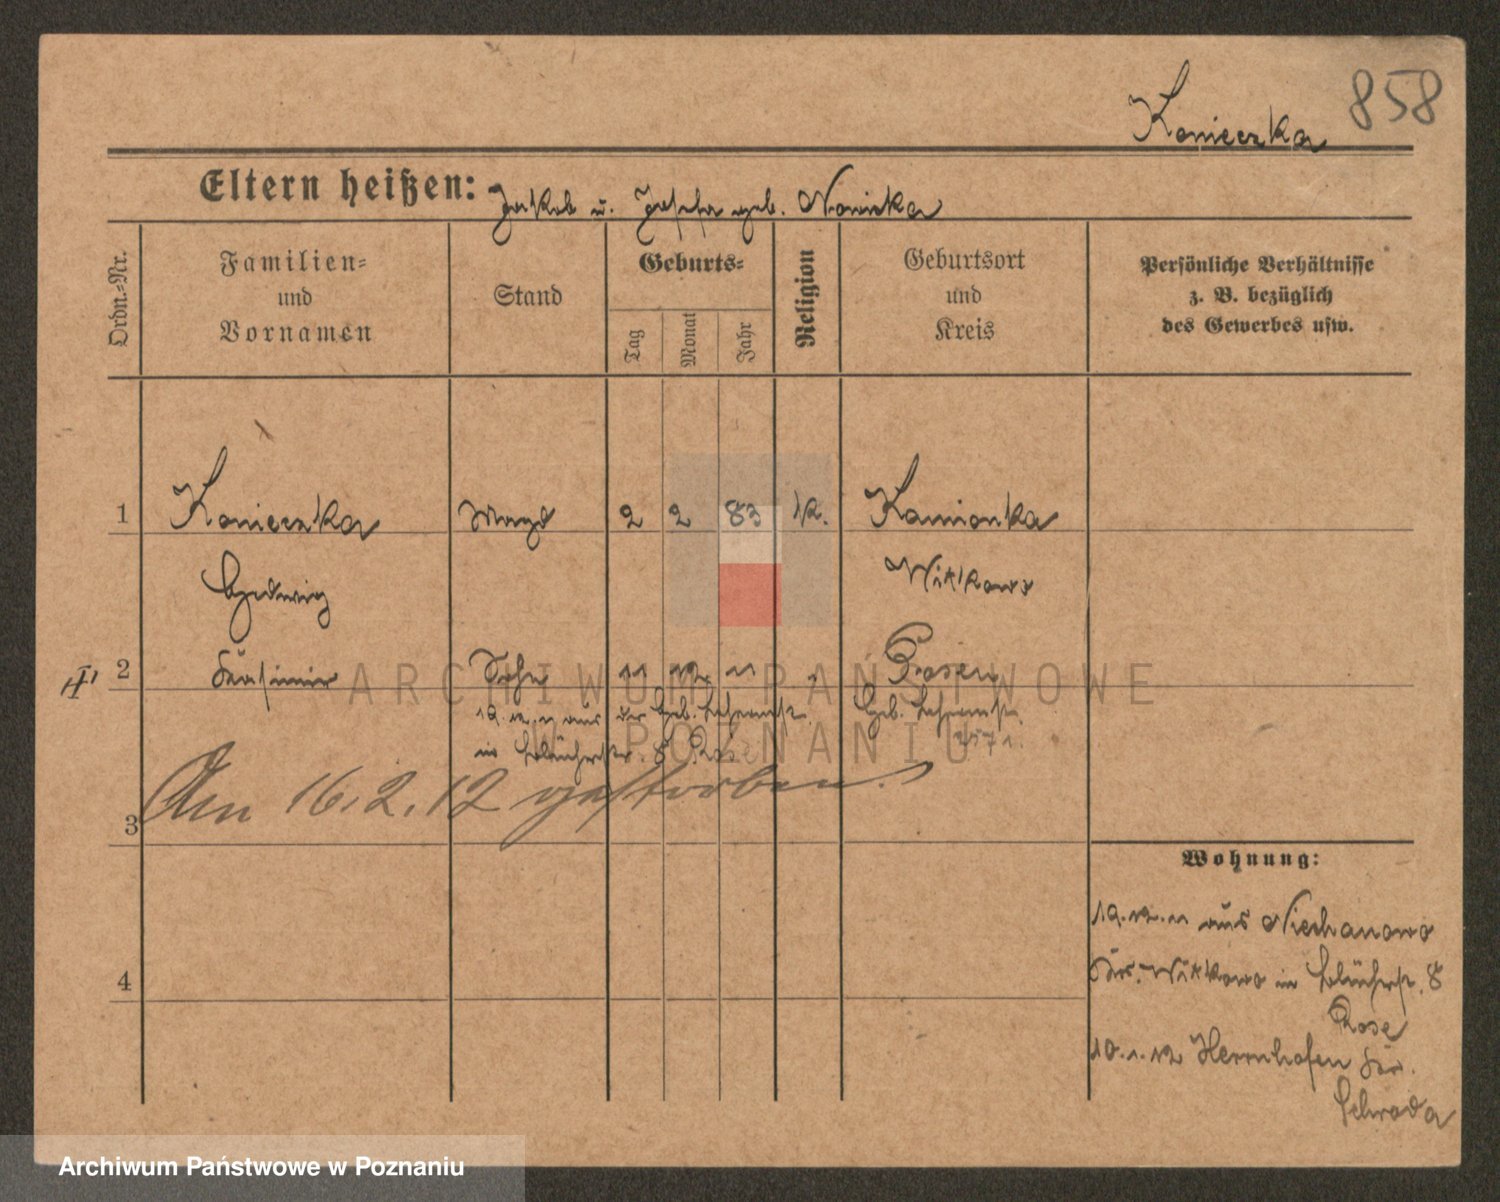 Konieczka 858
Eltern heißen: Jakob u. Josefa geb. Nowicka
Ordn.-Nr.
Familien-
und
Vornamen
Stand
Geburts-
Tag
Monat
Jahr
Religion
Geburtsort
und
Kreis
Persönliche Verhältnisse
z. B. bezüglich
des Gewerbes usw.
1 Konieczka Magd 2 2 83 k. Kamionka
Hedwig Witkowo
2 Kasimir Sohn 11 12 11 Posen
19.12.11 aus der Heb. Lehranst. Heb. Lehranst.
in Blücherstr. 8 Rose
Am 16.2.12 gestorben.
3
Wohnung:
19.12.11 aus Niechanowo
Krs. Witkowo in Blücherst. 8
Rose
4
10.1.12 Herrnhofen Kr.
Schroda
ARCHIWUM PAŃSTWOWE
W POZNANIU
Archiwum Państwowe w Poznaniu